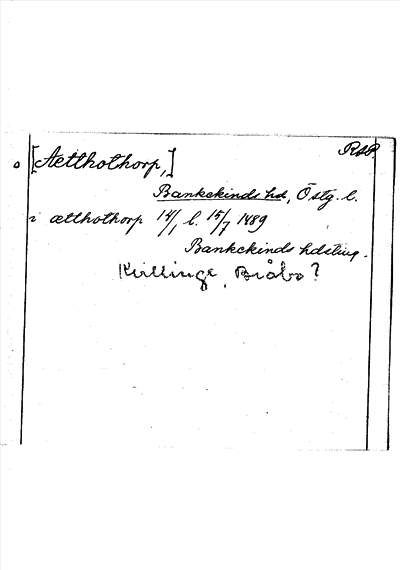 RAP
o [Ætthothorp,]
Bankekinds hd, Östg. l.
i ætthothorp 14/1 l. 15/7 1489
Bankekinds hdsting.
Kvillinge, Bråbo?